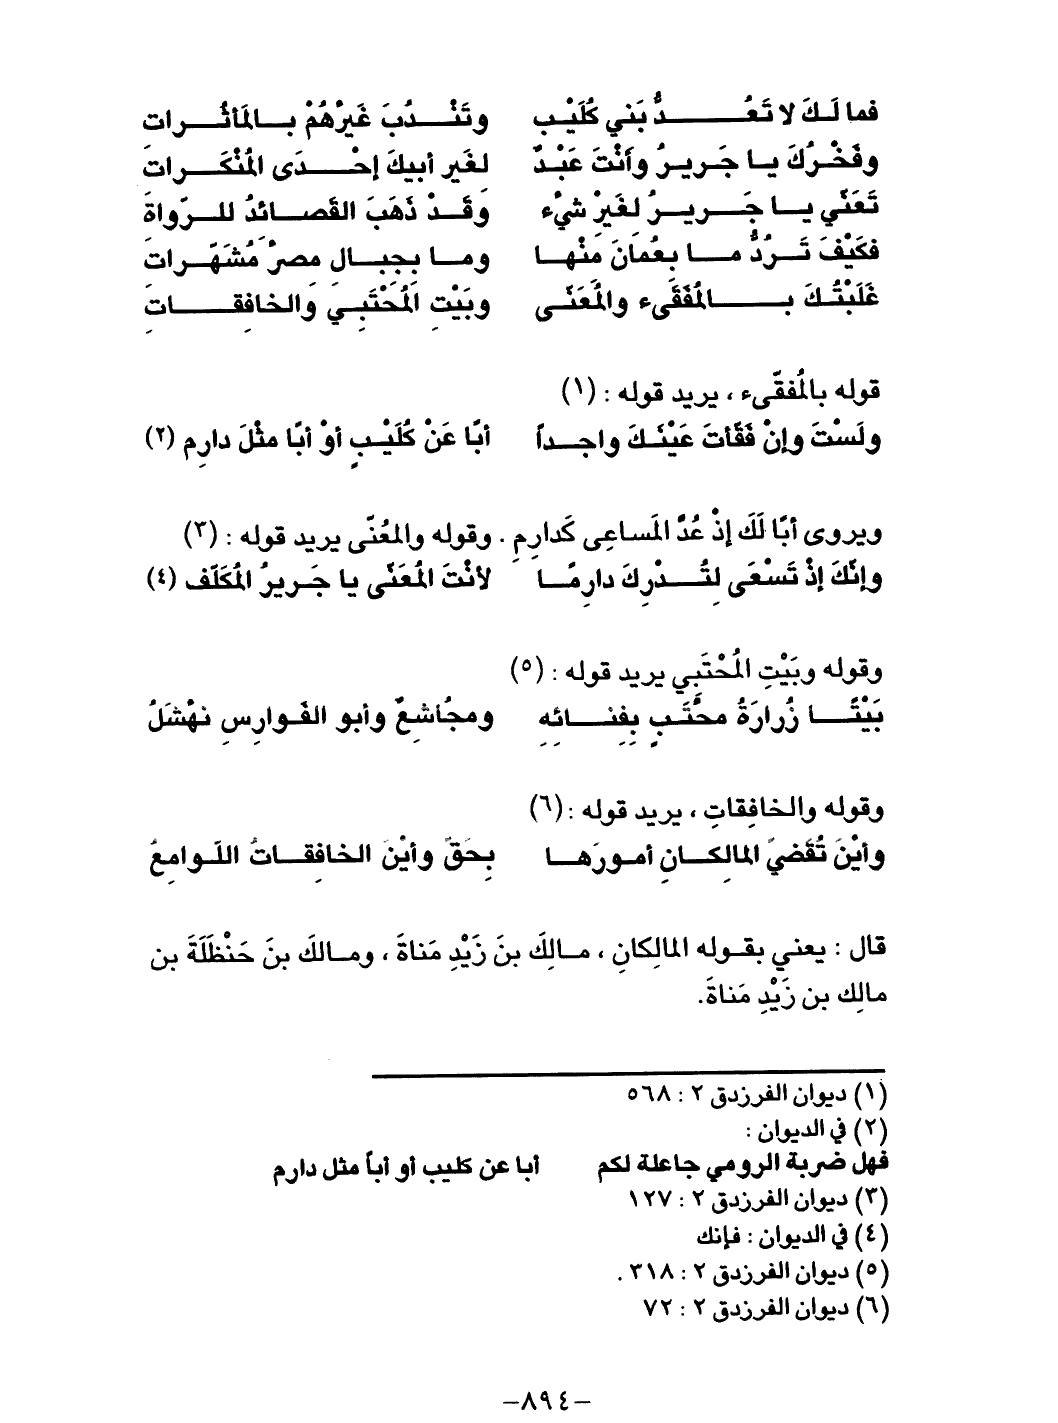 فما لَـكَ لا تَعُـــــدُّ بَني كُلَيْبٍ وتَنْـــدُبَ غَيْرَهُمْ بـــالمَأثُـــرات
وفَخْرُكَ يـا جَـريـرُ وأنْتَ عَبْدٌ لغَير أبيكَ إحْـــدَى المُنْكَـــرات
تَعَنَّى يـــا جَـــريـــرُ لغَيرْ شيْء وَقَـــدْ ذَهَبَ القَصـــائدُ للـــرّواة
فكَيْفَ تَـــرُدُّ مـــا بعُمَانَ مَنْهـا ومـــا بجبـــال مصرَ مُشَهَّـــرات
غَلَبْتُـكَ بـــــالمُفَقَّىء والمُعَنَّـى وبَيْتِ المُحْتَبـيِ والخـافقـــــاتِ
قوله بالمُفقّىء ، يريد قوله : (١)
ولَسْتَ وإنْ فَقَّأتَ عَيْنَـكَ واجـــداً أبًا عَنْ كُلَيْبٍ أوْ أبًا مثْلَ دارِم (٢)
ويروى أبًا لَكَ إذْ عُدَّ المَساعِى كَدارِمِ . وقوله والمعُنّى يريد قوله : (٣)
وإنَّكَ إذْ تَسْعَى لِتُـــدْرِكَ دارِمًـــا لأنْتَ المُعَنَّى يا جَـريرُ المُكَلّف (٤)
وقوله وبَيْتِ المُحْتَبِي يريد قوله : (٥)
بَيْتًـــا زُرارَةُ محُتَبٍ بِفِنـــائهِ ومجُاشِعٌ وأبو الفَوارِسِ نهْشَلُ
وقوله والخافِقاتِ ، يريد قوله : (٦)
وأيْنَ تُقَضيِّ المالِكـــانِ أمـورَهـــا بِحَقّ وأيْنَ الخافِقـــاتُ اللّوامِعُ
قال : يعني بقـوله المالِكانِ ، مـالِكَ بنَ زَيْدِ مَناةَ ، ومـالكَ بنَ حَنْظَلَةَ بن
مالِك بن زَيْدِ مَناةَ.
(١) ديوان الفرزدق ٢ : ٥٦٨
(٢) في الديوان :
فهل ضربة الرومي جاعلة لكم أبا عن كليب أو أباً مثل دارم
(٣) ديوان الفرزدق ٢ : ١٢٧
(٤) في الديوان : فإنك
(٥) ديوان الفرزدق ٢ : ٣١٨ .
(٦) ديوان الفرزدق ٢ : ٧٢
–٨٩٤–